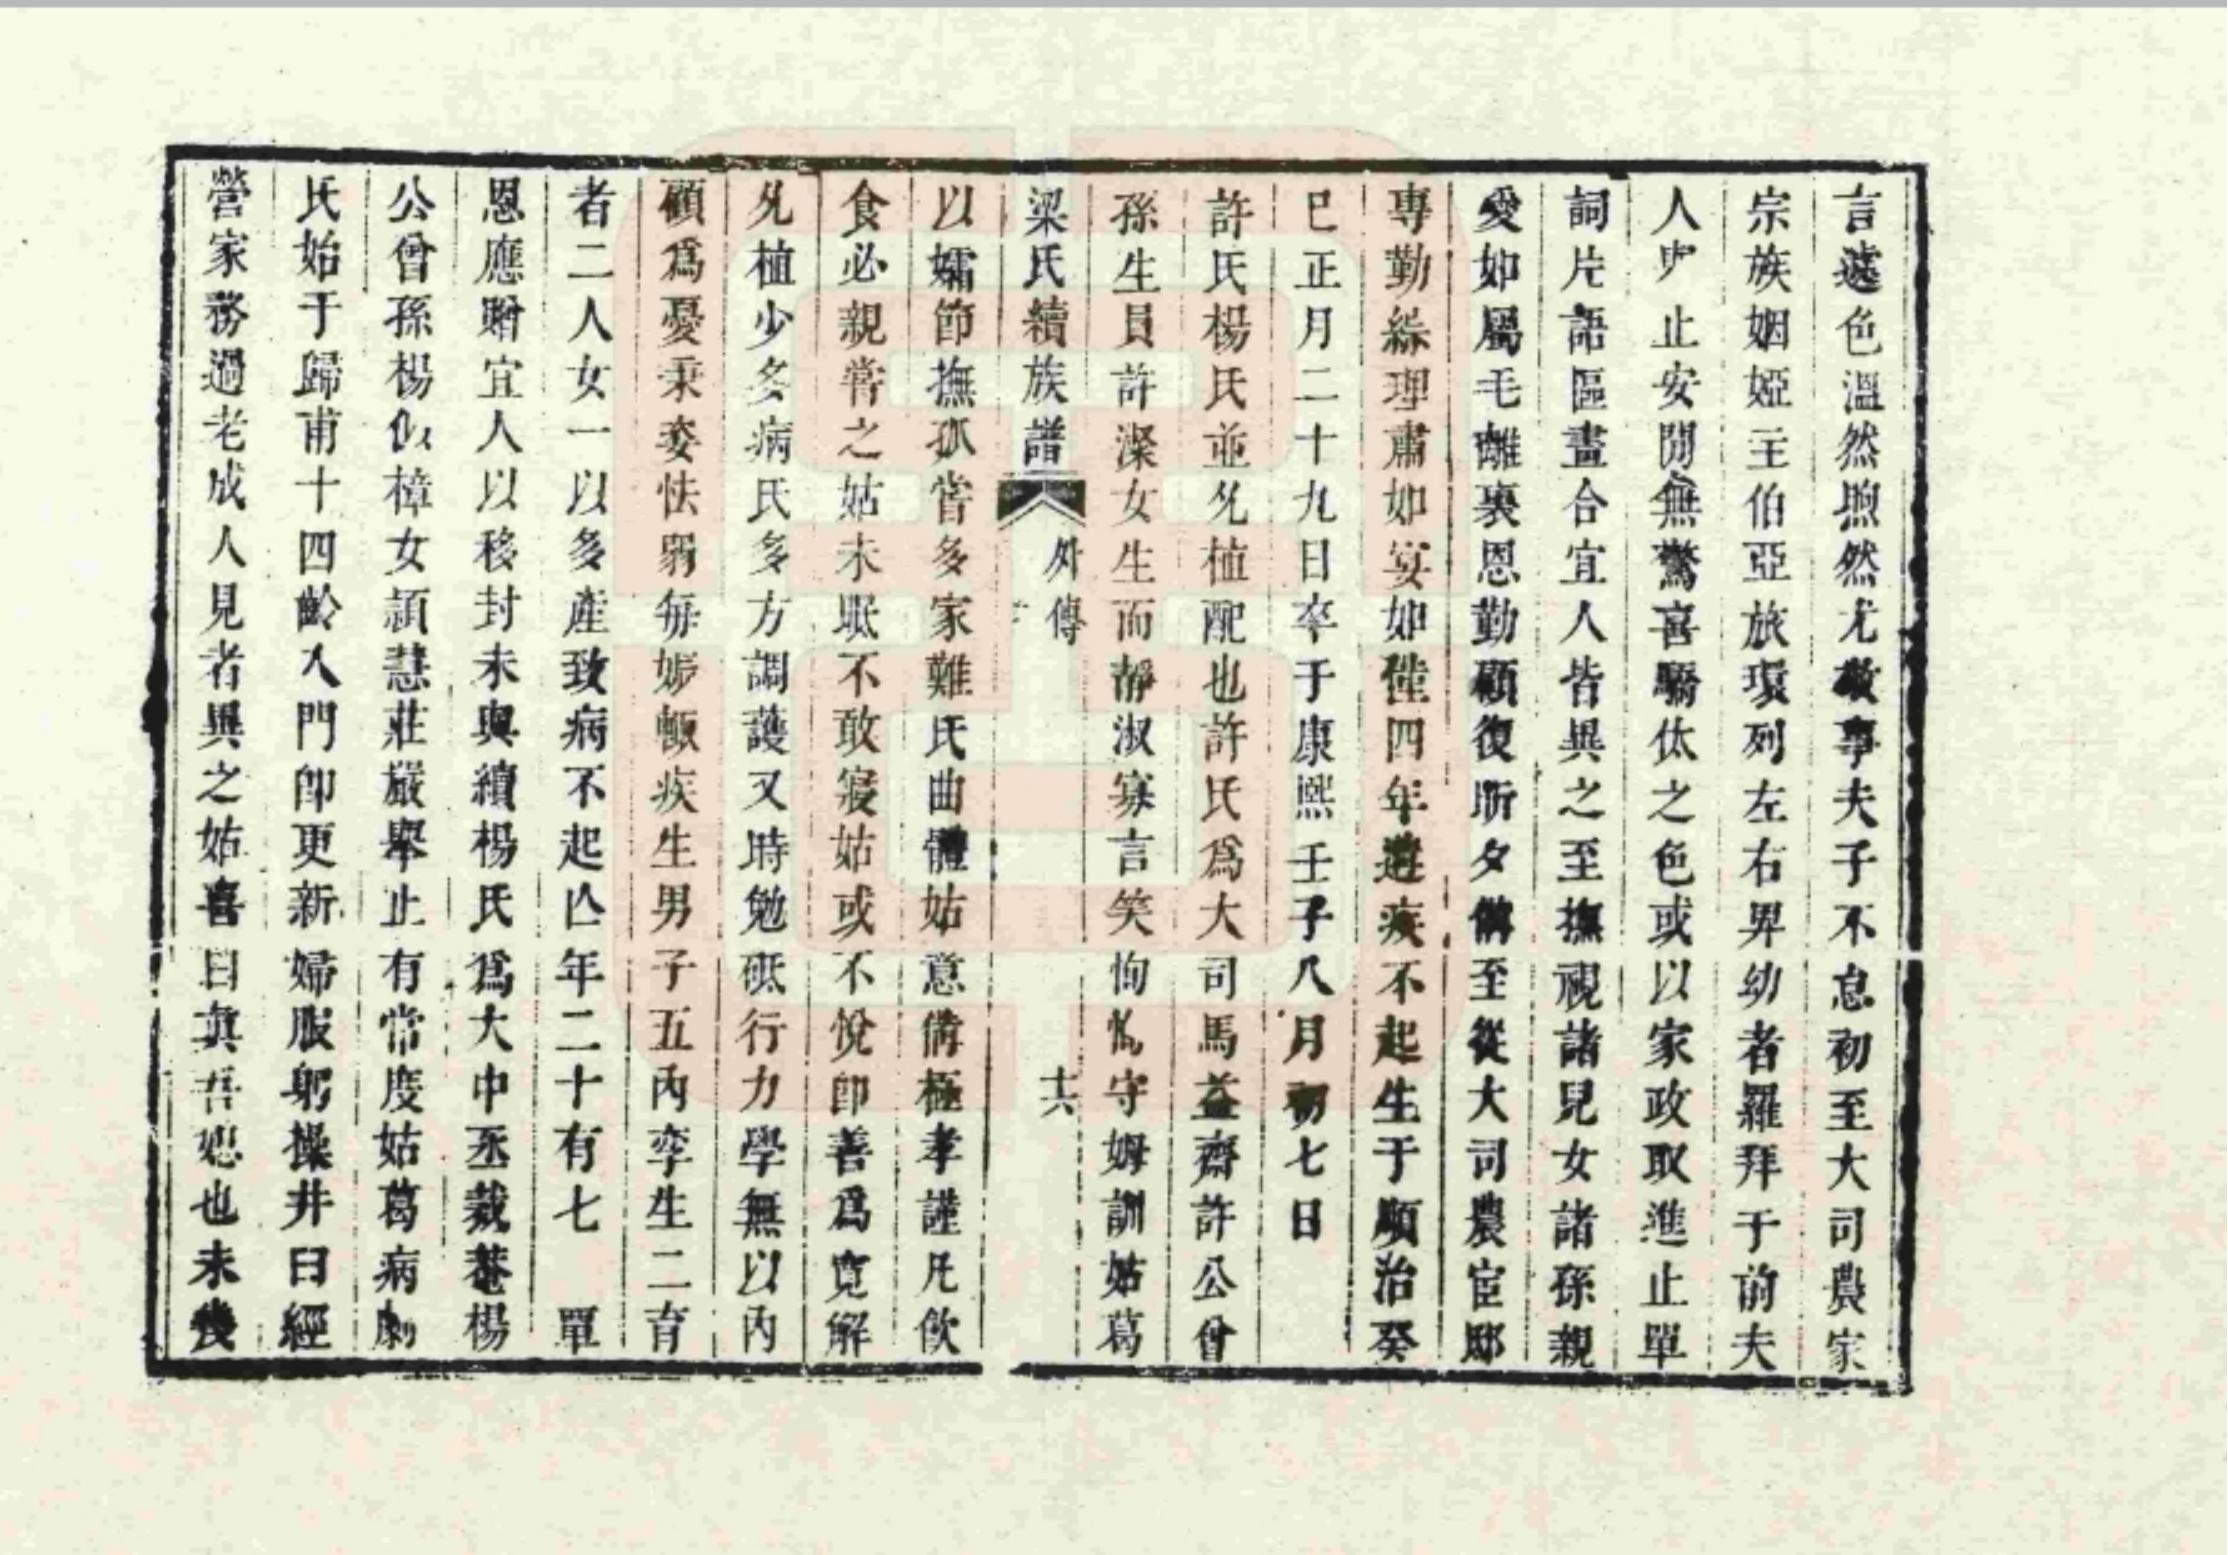 言遽色溫然煦然尤敬事夫子不怠初至大司農家
宗族姻婭主伯亞旅環列左右畀幼者羅拜于前夫
人史止安閒無驚喜驕汰之色或以家政取進止單
詞片語區畫合宜人皆異之至撫視諸兒女諸孫親
愛如屬毛離裏恩勤顧復昕夕備至從大司農宦邸
專勤綜理肅如宴如僅四年遘疾不起生于順治癸
巳正月二十九日卒于康熙壬子八月初七日
許氏楊氏並允植配也許氏爲大司馬益齋許公曾
孫生員許瀠女生而靜淑寡言笑恂恂守姆訓姑葛
梁氏續族譜 外傳 十六
以孀節撫孤嘗多家難氏曲體姑意備極孝謹凡飲
食必親嘗之姑未眠不敢寢姑或不悅卽善爲寬解
允植少多病氏多方調護又時勉砥行力學無以內
顧爲憂秉委怯弱每娠輒疾生男子五內孿生二育
者二人女一以多產致病不起亾年二十有七 單
恩應贈宜人以移封未與續楊氏爲大中丞裁菴楊
公曾孫楊似樟女穎慧莊嚴舉止有常度姑葛病劇
氏始于歸甫十四齡入門卽更新婦服躬操井臼經
營家務過老成人見者異之姑喜曰眞吾媳也未幾